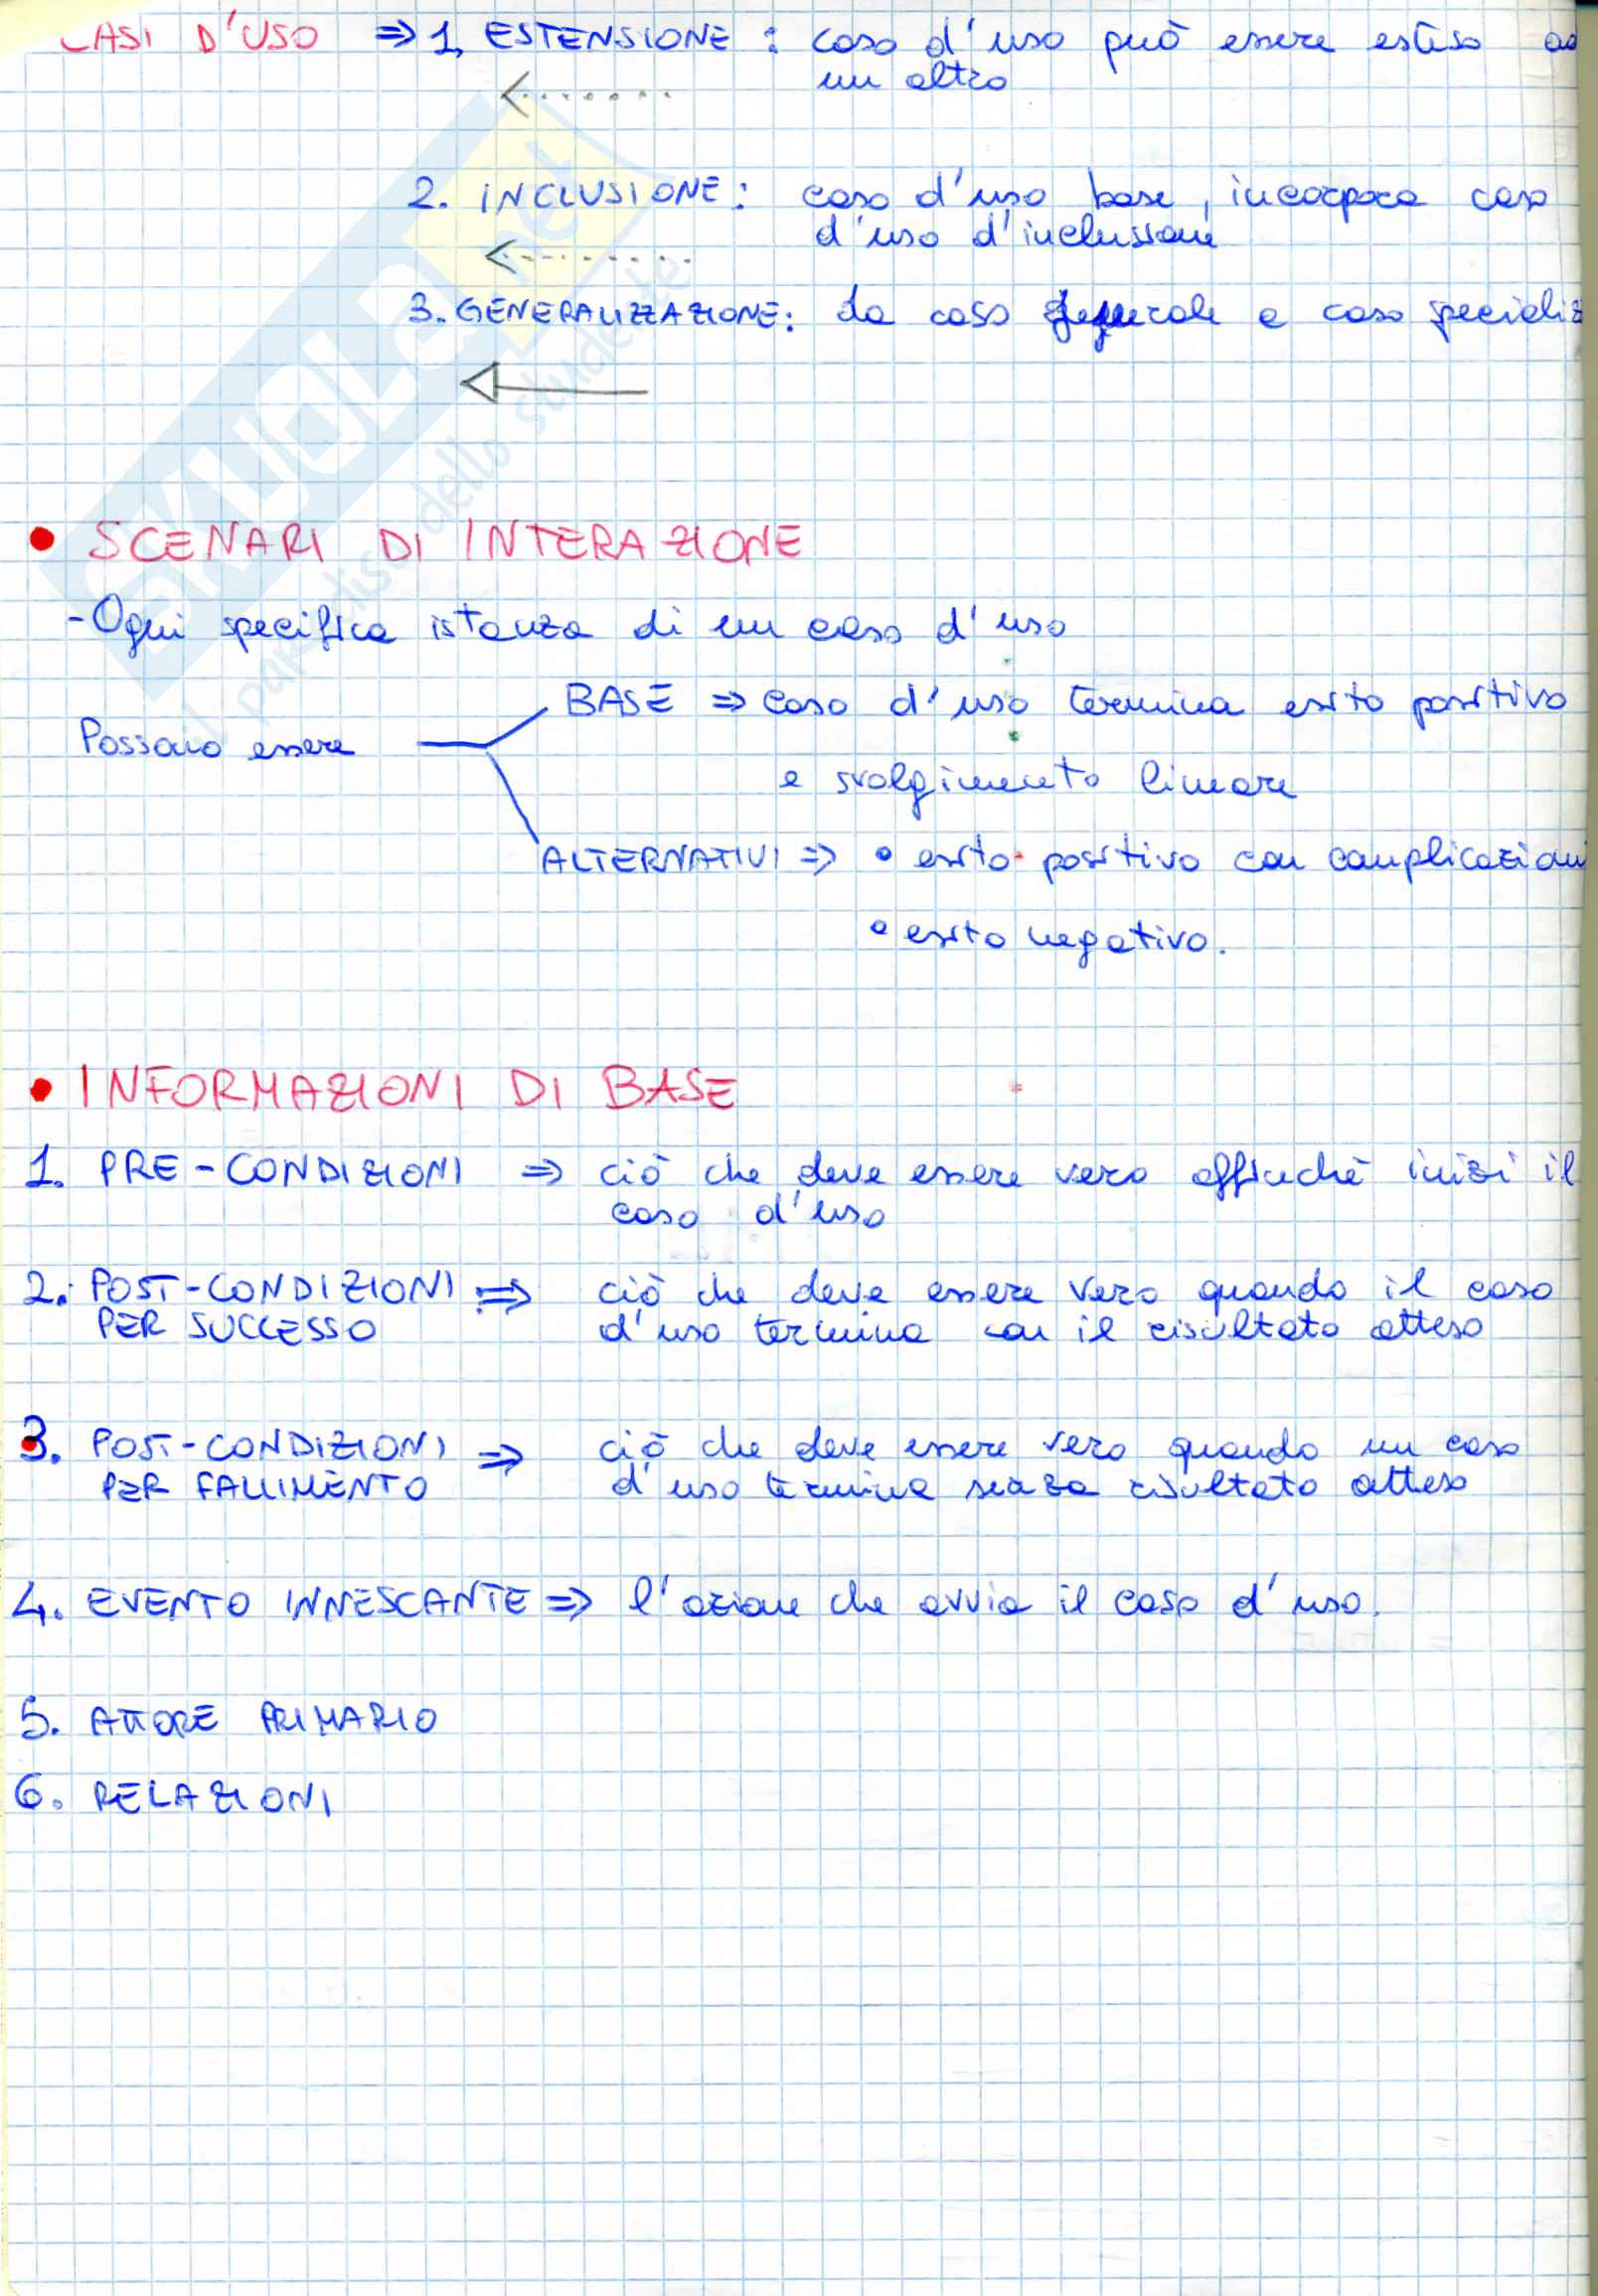 CASI D'USO ⇒ 1. ESTENSIONE : caso d'uso può essere esteso ad
un altro
2. INCLUSIONE: caso d'uso base, incorpora caso
d'uso d'inclusione
3. GENERALIZZAZIONE: da caso generale a caso specializ
• SCENARI DI INTERAZIONE
- Ogni specifica istanza di un caso d'uso
BASE ⇒ caso d'uso termina esito positivo
Possono essere
e svolgimento lineare
ALTERNATIVI ⇒ • esito positivo con complicazioni
• esito negativo.
• INFORMAZIONI DI BASE
1. PRE-CONDIZIONI ⇒ ciò che deve essere vero affinché inizi il
caso d'uso
2. POST-CONDIZIONI ⇒ ciò che deve essere vero quando il caso
PER SUCCESSO d'uso termina con il risultato atteso
3. POST-CONDIZIONI ⇒ ciò che deve essere vero quando un caso
PER FALLIMENTO d'uso termina senza risultato atteso
4. EVENTO INNESCANTE ⇒ l'azione che avvia il caso d'uso.
5. ATTORE PRIMARIO
6. RELAZIONI
SKUOLA.net
il paradiso dello studente